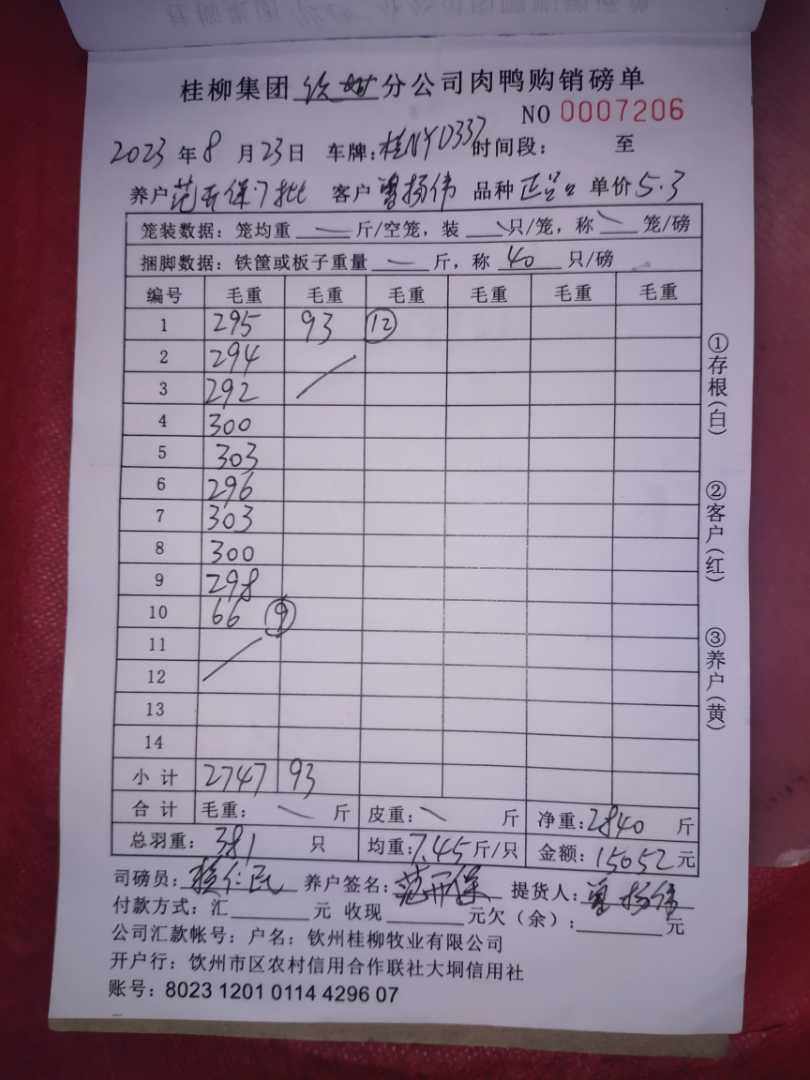 桂柳集团 钦州 分公司肉鸭购销磅单
NO 0007206
2023 年 8 月 23 日 车牌：桂NYD337 时间段： 至
养户 范开保7批 客户 曾杨伟 品种 单价 5.3
笼装数据：笼均重 斤/空笼，装 只/笼，称 笼/磅
捆脚数据：铁筐或板子重量 斤，称 40 只/磅
编号 毛重 毛重 毛重 毛重 毛重 毛重
1 295 93 ⑫
2 294
3 292
4 300
5 303
6 296
7 303
8 300
9 298
10 66 ⑨
11
12
13
14
小计 2747 93
合计 毛重： 斤 皮重： 斤 净重：2840 斤
总羽重：381 只 均重：7.45 斤/只 金额：15052 元
司磅员： 养户签名：范开保 提货人：曾杨伟
付款方式：汇 元 收现 元欠（余）： 元
公司汇款帐号：户名：钦州桂柳牧业有限公司
开户行：钦州市区农村信用合作联社大垌信用社
账号：8023 1201 0114 4296 07
①存根（白）
②客户（红）
③养户（黄）